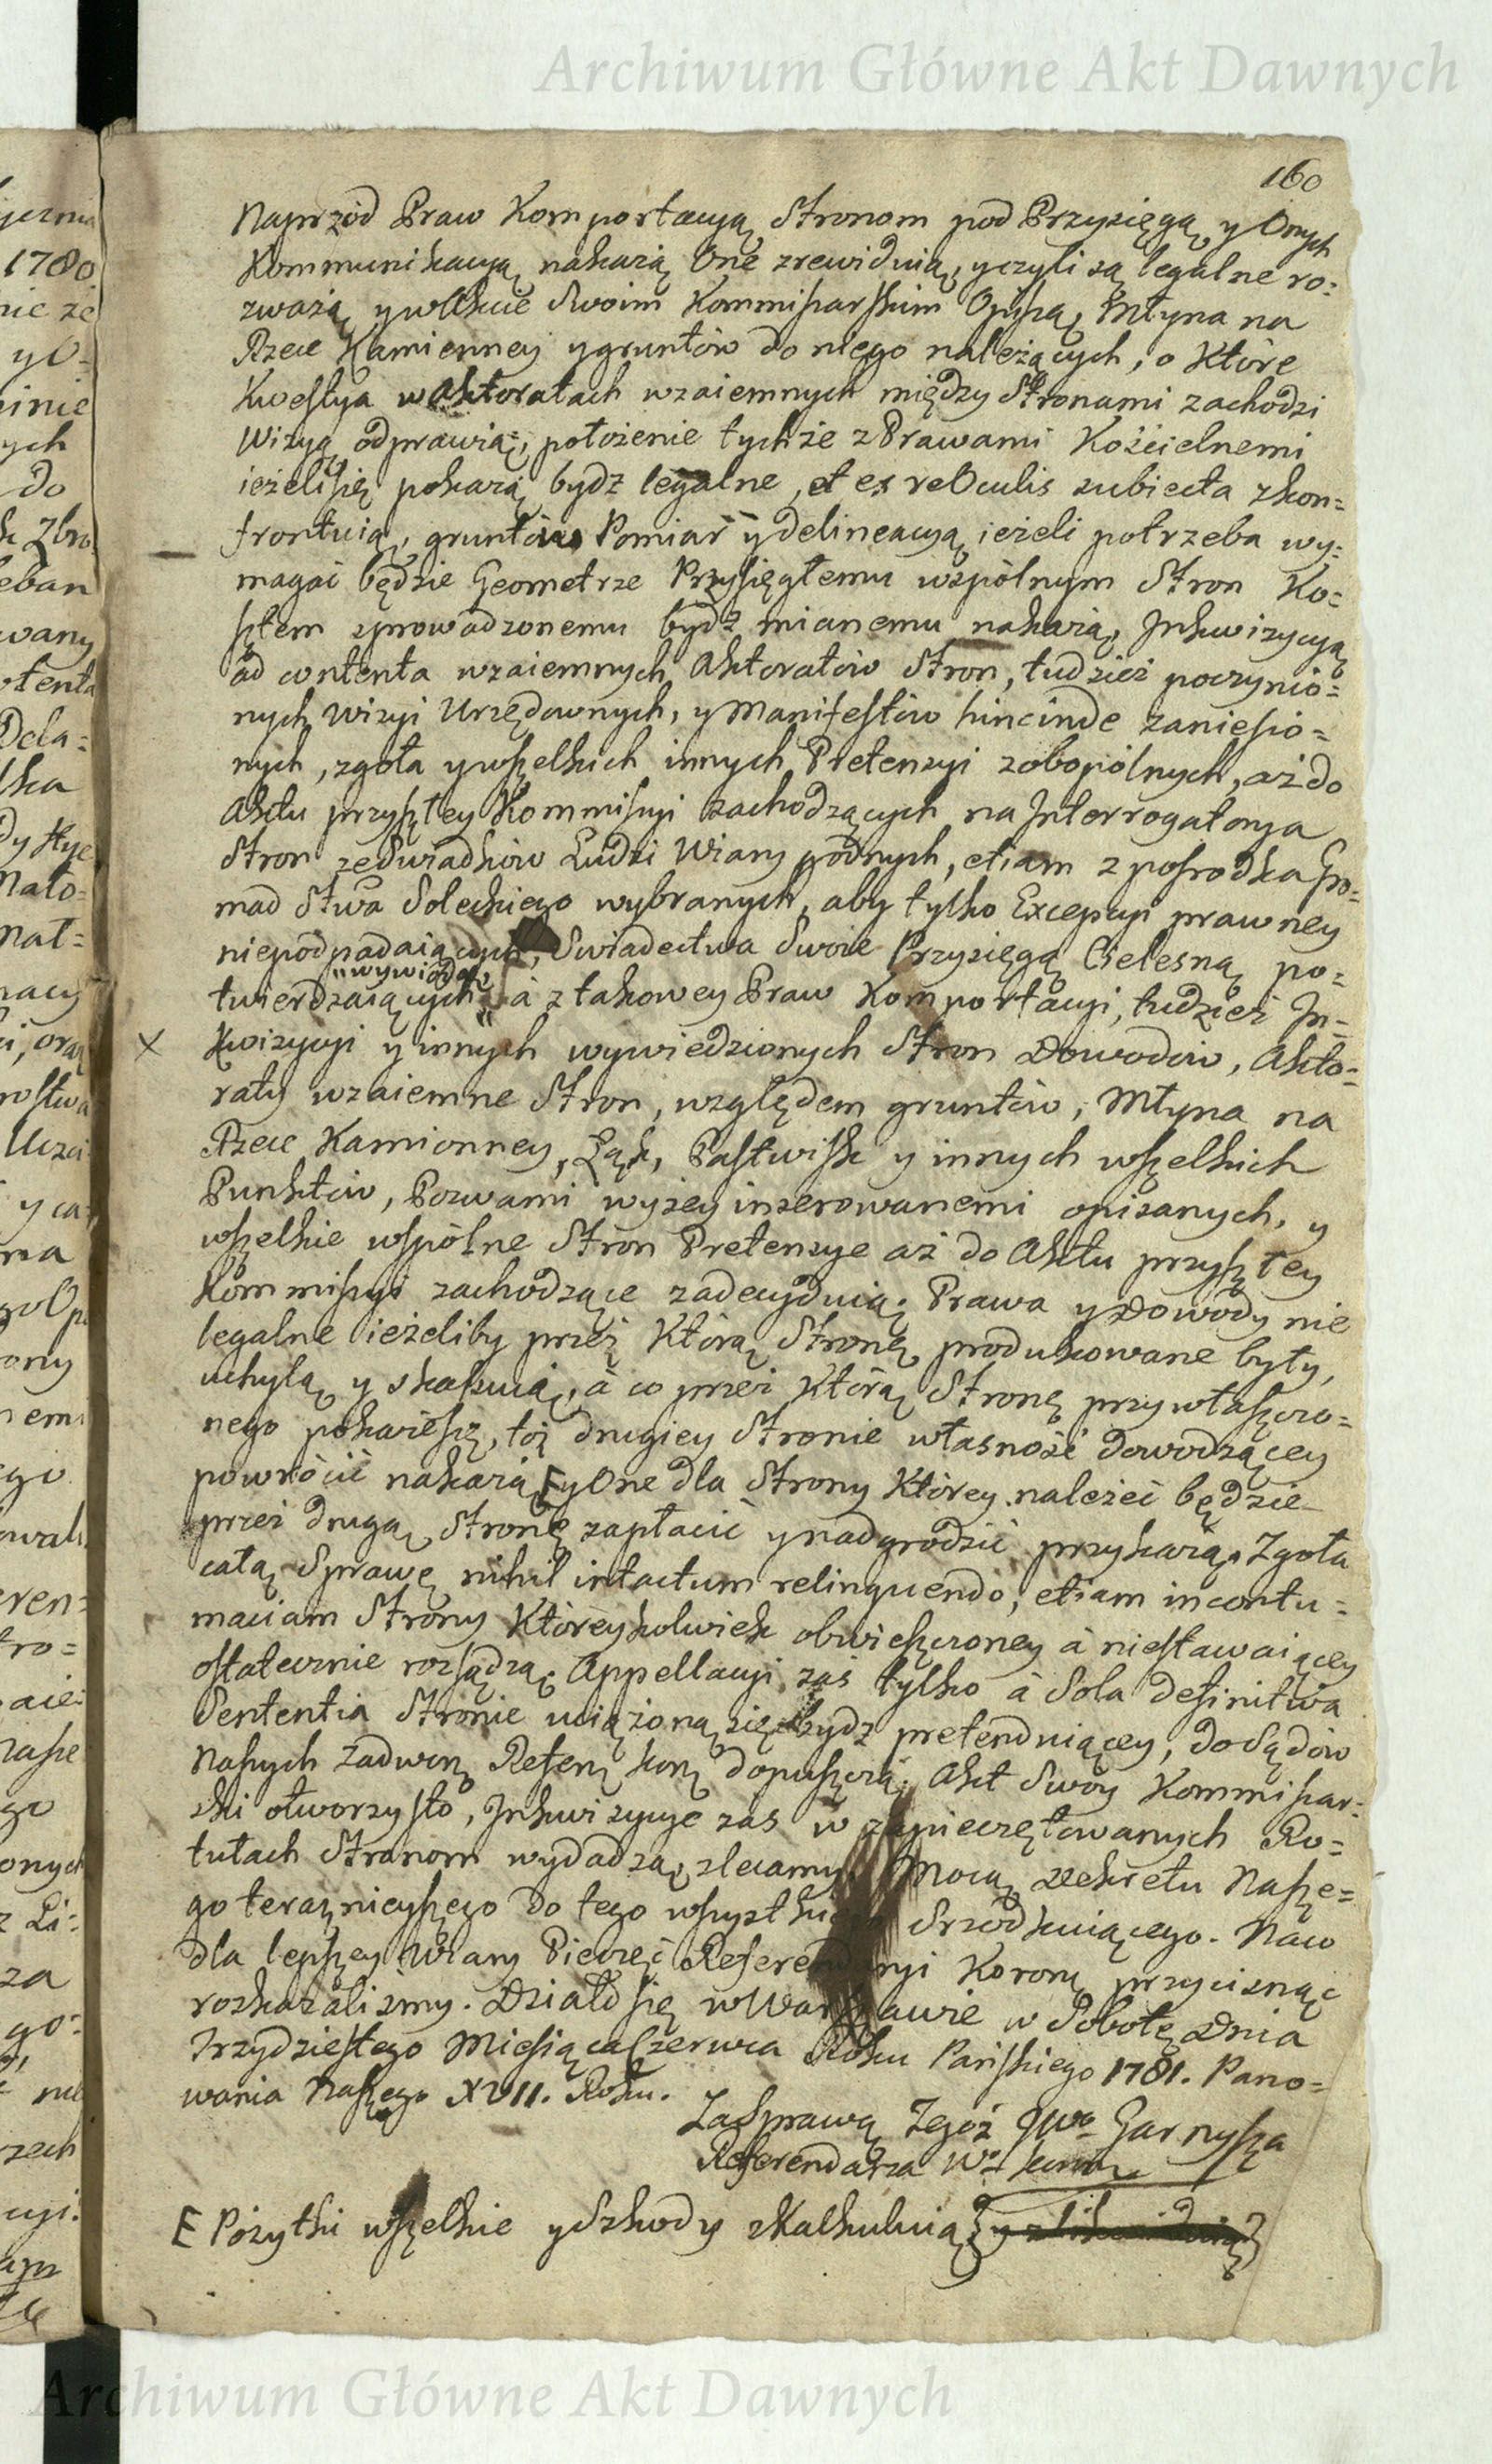 Archiwum Główne Akt Dawnych
160
Naprzód Praw Komportacyą Stronom pod Przysięgą y Onych
Kommunikacyą nakażą One zrewiduią, y czyli są legalne ro=
zważą y w Akcie Swoim Kommissarskim Opiszą, Młyna na
Rzece Kamienney y gruntów do niego należących, o które
Kwestya w Aktoratach wzaiemnych między Stronami zachodzi
Wizyą odprawią, położenie tychże z Prawami Kościelnemi
ieżeli się pokażą bydz legalne, et ex re Oculis subiecta zkon=
frontuią, gruntów Pomiar y delineacyą ieżeli potrzeba wy=
magać będzie Geometrze Przysięgłemu wspólnym Stron Ko=
sztem sprowadzonemu bydź mianemu nakażą, Inkwizycyą
ad contenta wzaiemnych Aktoratów Stron, tudzież poczynio=
nych Wizyi Urzędownych, y Manifestów hincinde zaniesio=
nych, zgoła y wszelkich innych Pretensyi zobopólnych, aż do
Aktu przyszłey Kommissyi zachodzących na Interrogatorya
Stron ze Swiadków Ludzi Wiary godnych, etiam z posrodka Gro=
mad Stwa Soleckiego wybranych, aby tylko Excepcyi prawney
niepodpadaiących, Swiadectwa Swoie Przysięgą Cielesną po=
"wywiodą,
twierdzaiących " à z takowey Praw Komportacyi, tudzież In=
x kwizycyi y innych wywiedzionych Stron Dowodów, Akto=
raty wzaiemne Stron, względem gruntów, Młyna na
Rzece Kamionney, Łąk, Pastwisk y innych wszelkich
Punktów, Pozwami wyżey inserowanemi opisanych, y
wszelkie wspólne Stron Pretensye aż do Aktu przyszłey
Kommissyi zachodzące zadecyduią; Prawa y Dowody nie
legalne ieżeliby przez Którą Stronę produkowane były,
uchylą y skassuią, à co przez Którą Stronę przywłaszczo=
nego pokaże się, toż drugiey Stronie własność dowodzącey
powrócić nakażą E y One dla Strony Którey należeć będzie
przez drugą Stronę zapłacić y nadgrodzić przykażą. Zgoła
całą Sprawę nihil intactum relinquendo, etiam in contu=
maciam Strony Któreykolwiek obwieszczoney à niestawaiącey
ostatecznie rozsądzą; Appellacyi zaś tylko à Sola definitiva
Sententia Stronie uciążoną się bydz pretenduiącey, do Sądów
Naszych Zadwor. Referen. Kor. dopuszczą; Akt Swoy Kommissar=
ski otworzysto, Inkwizycye zas w zapieczętowanych Ro=
tułach Stronom wydadzą, zlecamy, Mocą Dekretu Nasze=
go teraznieyszego do tego wszystkiego Srzodkuiącego. Na co
dla lepszey Wiary Pieczęć Referendaryi Koron. przycisnąć
rozkazalismy. Działo się w Warszawie w Sobotę Dnia
Trzydziestego Miesiąca Czerwca Roku Pańskiego 1781. Pano=
wania Naszego XVII. Roku.
Za Sprawą Tegoż JWo Garnysza
Referendarza Wo Koron.
E Pożytki wszelkie y Szkody skalkuluią y zlikwiduią
Archiwum Główne Akt Dawnych